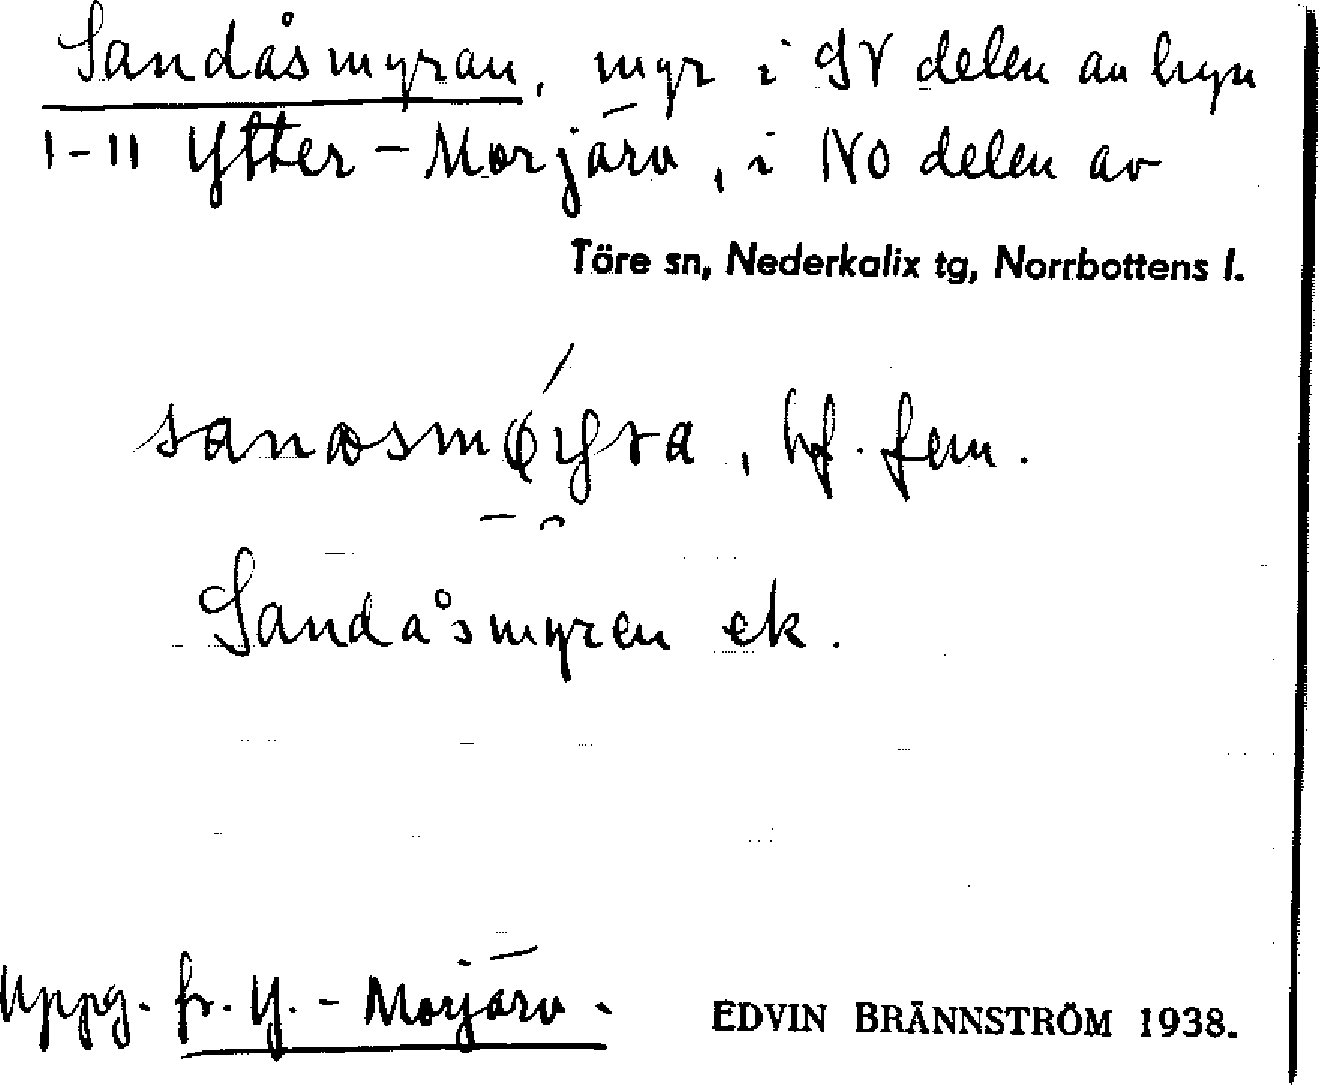 Sandåsmyran, myr i SV delen av byn
1-11 Ytter-Morjärv, i NO delen av
Töre sn, Nederkalix tg, Norrbottens l.
bf. fem.
Sandåsmyren ek.
Uppg. fr. Y.-Morjärv.
EDVIN BRÄNNSTRÖM 1938.